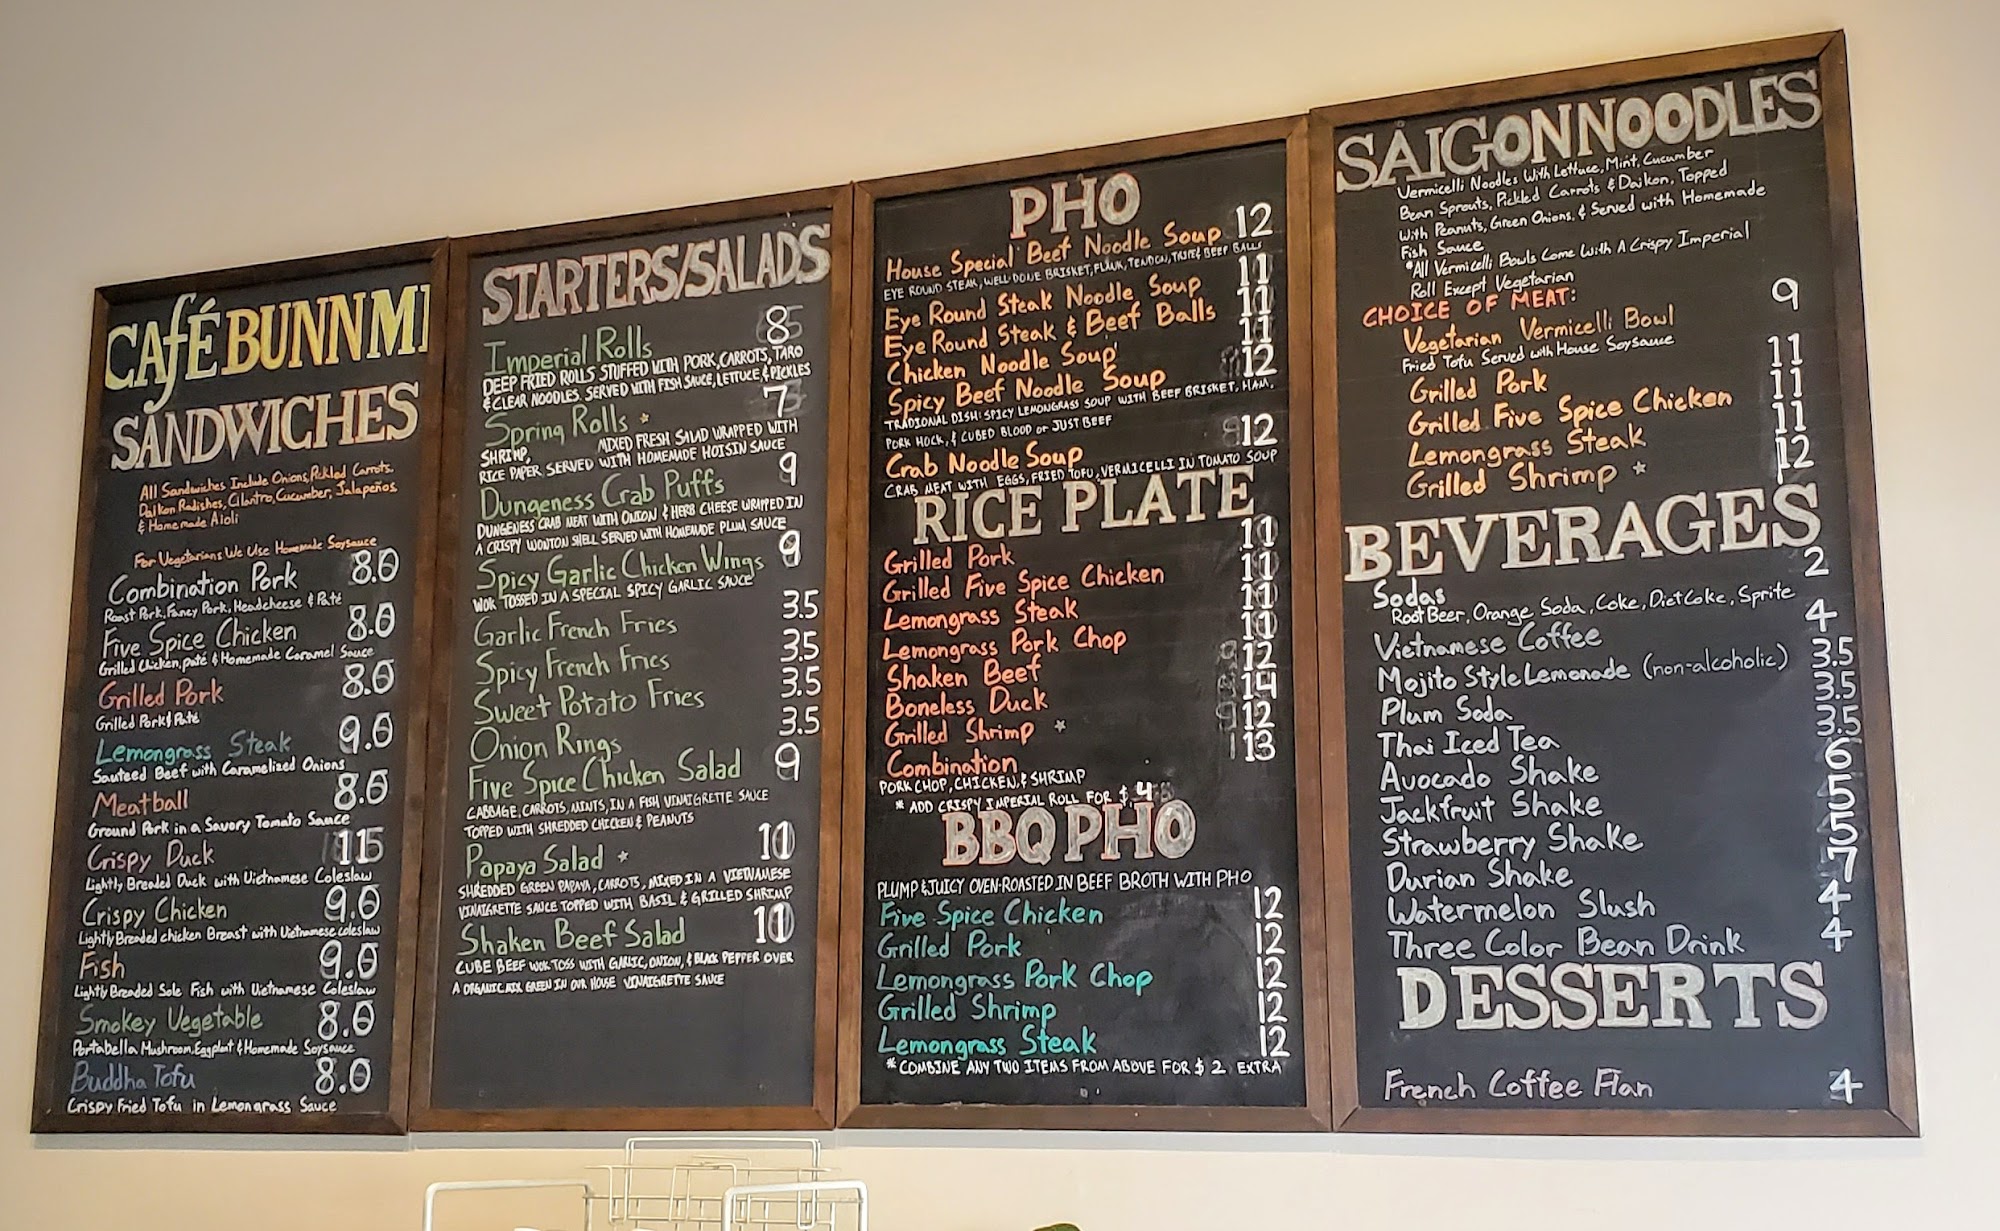 CAFÉ BUNN MI
SANDWICHES
All Sandwiches Include Onions, Pickled Carrots,
Daikon Radishes, Cilantro, Cucumber, Jalapeños
& Homemade Aioli
For Vegetarians We Use Homemade Soysauce
Combination Pork 8.0
Roast Pork, Fancy Pork, Headcheese & Paté
Five Spice Chicken 8.0
Grilled Chicken, paté & Homemade Caramel Sauce
Grilled Pork 8.0
Grilled Pork & Paté
Lemongrass Steak 9.0
Sauteed Beef with Caramelized Onions
Meatball 8.0
Ground Pork in a Savory Tomato Sauce
Crispy Duck 11.5
Lightly Breaded Duck with Vietnamese Coleslaw
Crispy Chicken 9.0
Lightly Breaded chicken Breast with Vietnamese coleslaw
Fish 9.0
Lightly Breaded Sole Fish with Vietnamese Coleslaw
Smokey Vegetable 8.0
Portabella Mushroom, Eggplant & Homemade Soysauce
Buddha Tofu 8.0
Crispy Fried Tofu in Lemongrass Sauce
STARTERS/SALADS
Imperial Rolls 8
DEEP FRIED ROLLS STUFFED WITH PORK, CARROTS, TARO
& CLEAR NOODLES. SERVED WITH FISH SAUCE, LETTUCE, & PICKLES
Spring Rolls * 7
SHRIMP, MIXED FRESH SALAD WRAPPED WITH
RICE PAPER SERVED WITH HOMEMADE HOISIN SAUCE
Dungeness Crab Puffs 9
DUNGENESS CRAB MEAT WITH ONION & HERB CHEESE WRAPPED IN
A CRISPY WONTON SHELL SERVED WITH HOMEMADE PLUM SAUCE
Spicy Garlic Chicken Wings 9
WOK TOSSED IN A SPECIAL SPICY GARLIC SAUCE
Garlic French Fries 3.5
Spicy French Fries 3.5
Sweet Potato Fries 3.5
Onion Rings 3.5
Five Spice Chicken Salad 9
CABBAGE, CARROTS, MINTS, IN A FISH VINAIGRETTE SAUCE
TOPPED WITH SHREDDED CHICKEN & PEANUTS
Papaya Salad * 10
SHREDDED GREEN PAPAYA, CARROTS, MIXED IN A VIETNAMESE
VINAIGRETTE SAUCE TOPPED WITH BASIL & GRILLED SHRIMP
Shaken Beef Salad 10
CUBE BEEF WOK TOSS WITH GARLIC, ONION, & BLACK PEPPER OVER
A ORGANIC MIX GREEN IN OUR HOUSE VINAIGRETTE SAUCE
PHO
House Special Beef Noodle Soup 12
EYE ROUND STEAK, WELL-DONE BRISKET, FLANK, TENDON, TRIPE & BEEF BALLS
Eye Round Steak Noodle Soup 11
Eye Round Steak & Beef Balls 11
Chicken Noodle Soup 11
Spicy Beef Noodle Soup 12
TRADIONAL DISH: SPICY LEMONGRASS SOUP WITH BEEF BRISKET, HAM,
PORK HOCK, & CUBED BLOOD or JUST BEEF
Crab Noodle Soup 12
CRAB MEAT WITH EGGS, FRIED TOFU, VERMICELLI IN TOMATO SOUP
RICE PLATE
Grilled Pork 11
Grilled Five Spice Chicken 11
Lemongrass Steak 11
Lemongrass Pork Chop 11
Shaken Beef 12
Boneless Duck 14
Grilled Shrimp * 12
Combination 13
PORK CHOP, CHICKEN, & SHRIMP
* ADD CRISPY IMPERIAL ROLL FOR $4
BBQ PHO
PLUMP & JUICY OVEN-ROASTED IN BEEF BROTH WITH PHO
Five Spice Chicken 12
Grilled Pork 12
Lemongrass Pork Chop 12
Grilled Shrimp 12
Lemongrass Steak 12
*COMBINE ANY TWO ITEMS FROM ABOVE FOR $2 EXTRA
SAIGON NOODLES
Vermicelli Noodles With Lettuce, Mint, Cucumber
Bean Sprouts, Pickled Carrots & Daikon, Topped
With Peanuts, Green Onions, & Served with Homemade
Fish Sauce
*All Vermicelli Bowls Come With A Crispy Imperial
Roll Except Vegetarian
CHOICE OF MEAT:
Vegetarian Vermicelli Bowl 9
Fried Tofu Served with House Soysauce
Grilled Pork 11
Grilled Five Spice Chicken 11
Lemongrass Steak 11
Grilled Shrimp * 12
BEVERAGES
Sodas 2
Root Beer, Orange Soda, Coke, Diet Coke, Sprite
Vietnamese Coffee 4
Mojito Style Lemonade (non-alcoholic) 3.5
Plum Soda 3.5
Thai Iced Tea 3.5
Avocado Shake 6
Jackfruit Shake 5
Strawberry Shake 5
Durian Shake 7
Watermelon Slush 4
Three Color Bean Drink 4
DESSERTS
French Coffee Flan 4